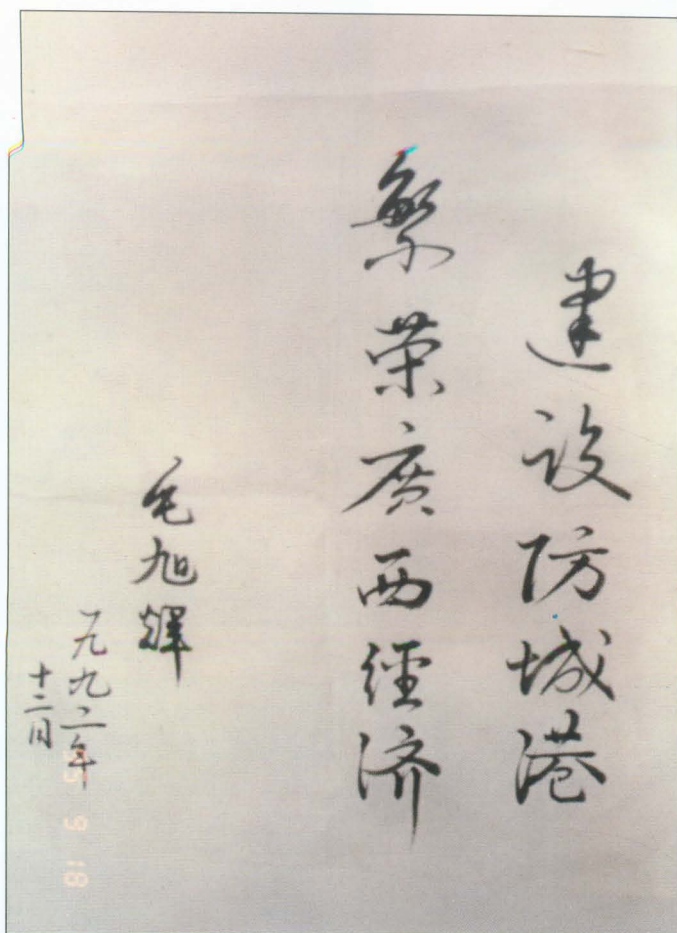 建设防城港
繁荣廣西經济
毛旭輝
一九九二年
十二月
95 9 18